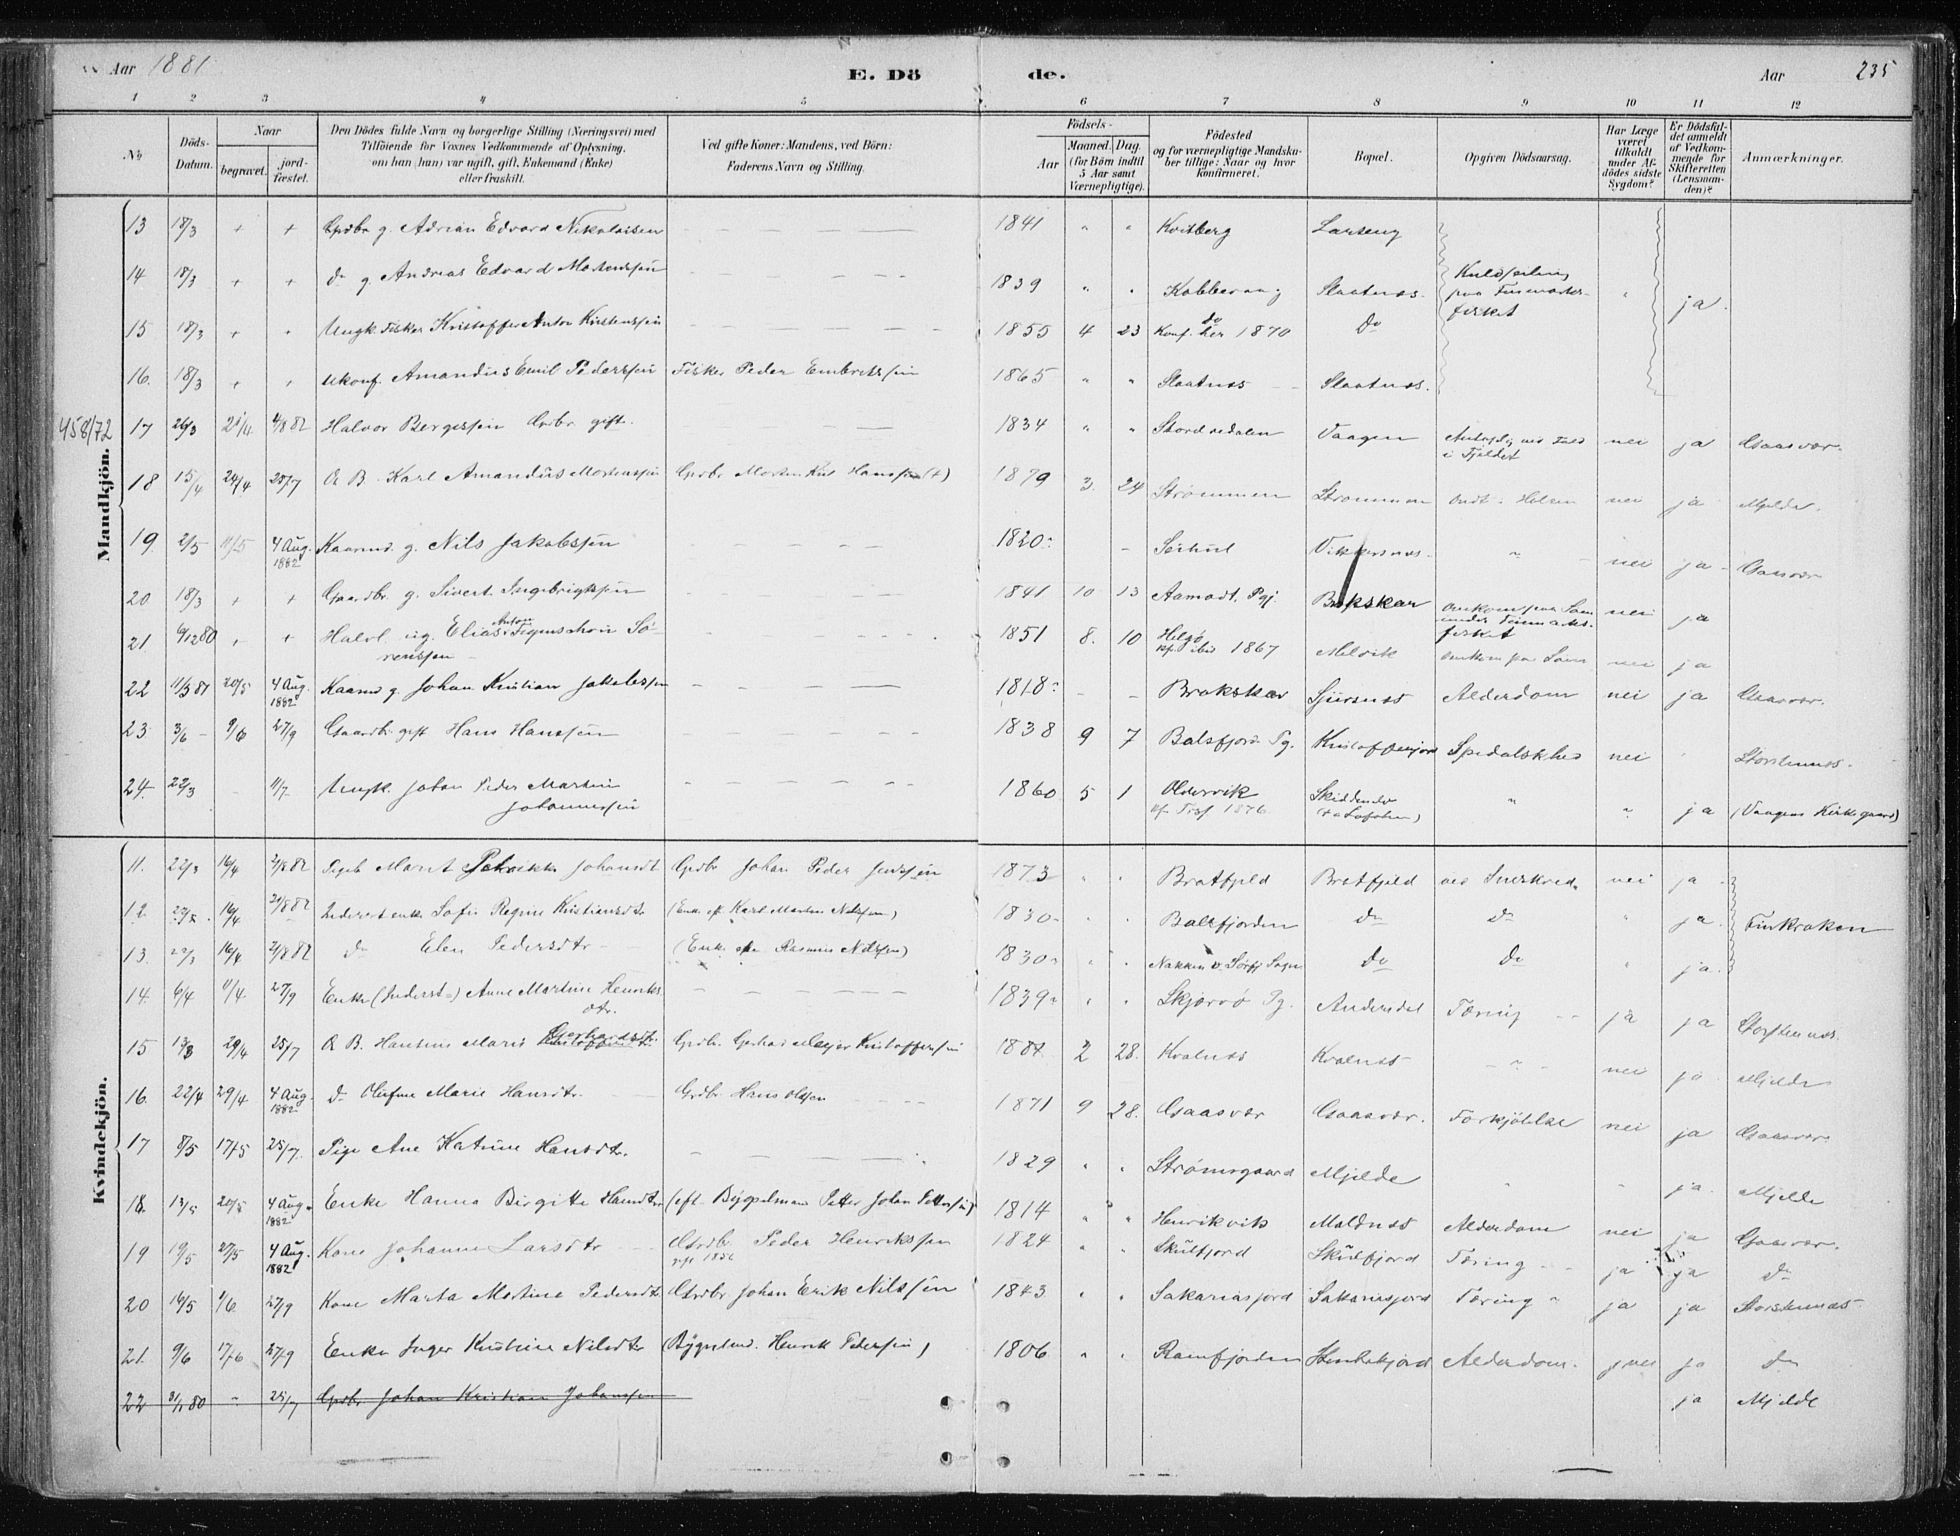 Aar 1881 E. Dö de. Aar 235
1 2 3 4 5 6 7 8 9 10 11 12
No Döds-Datum. Naar begravet. jordfæstet. Den Dödes fulde Navn og borgerlige Stilling (Næringsvei) med Tilföiende för Voxnes Vedkommende af Oplysning, om han (hun) var ugift, gift, Enkemand (Enke) eller fraskilt. Ved gifte Koner: Mandens, ved Börn: Faderens Navn og Stilling. Födsels- Aar Maaned. Dag. (for Börn indtil 5 Aar samt Værnepligtige). Födested og for værnepligtige Mandskaber tillige: Naar og hvor konfirmeret. Bopæl. Opgiven Dödsaarsag. Har Læge været tilkaldt under Afdödes sidste Sygdom? Er Dödsfaldet anmeldt af Vedkommende for Skifteretten (Lensmanden)? Anmærkninger.
Mandkjön.
13 18/3 + + Grdbr g. Adrian Edvard Nikolaisen — 1841 " " Kvitberg Larseng
14 18/3 + + do g Andreas Edvard Mortenssøn — 1839 " " Kobbevaag Slaatnes. Kuldseiling paa Finmarks-fisket " ja.
15 18/3 + " Ungk Fisker Kristoffer Anton Kristenssøn — 1855 4 23 do Konf. her 1870 Do
16. 18/3 + + ukonf. Amandus Emil Pederssøn Fisker Peder Embrikssøn 1865 " " Slaatnes Slaatnes.
458/72 17 26/3 21/4 4/8 82 Halvor Bergessøn Grdbr. gift. 1834 " " Stordredalen Vaagen i Fjeldet nei ja Gaasvær.
18 15/4 24/4 25/7 Æ B. Karl Amandus Mortenssøn Grdbr Morten Hanssøn (+) 1879 3. 24 Strømmen Strømmen ondt i Halsen nei ja Mjelde.
19. 2/5 11/5 4 Aug. 1882 Kaarmd. g. Nils Jakobssøn — 1820 - Vikkersnes. " nei ja Gaasvær
20 18/3 + + Gaardbr. g. Sivert Ingebrigtssøn — 1841 10 13 Aamodt. Pgj. Brokskar omkom paa Søen under Finmarks-fisket nei ja
21 6/12 80 + + Halvl. ug. Elias Anton Sø-renssøn — 1851 8. 10 Helgø kf. ibid 1867 Melvik omkom paa Søen nei ja
22 11/5 81 20/5 4 Aug. 1882 Kaarmd g. Johan Kristian Jakobssøn 1818 - - Brokskar Sjursnes Alderdom nei ja Gaasvær.
23 3/6 9/6 27/9 Gaardbr. gift Hans Hanssøn — 1838 9 7 Balsfjord Pg. Kristoffersjord Spedalskhed nei Storstennes.
24. 22/3 11/7. Ungk. Johan Peder Martin Johannessøn — 1860 5 1 Oldervik kf. 1876 (Vaagens Kirkegaard) " ja
Kvindekjön.
11. 22/3 16/4 2/8 82 Pigeb Marit Petrikke Johansdt Grdbr Johan Peder Jenssøn 1873 " " Bratfjeld Bratfjeld ved Sneskred. nei ja
12. 22/3. 16/4 2/8 82 Inderst enke Sofie Regine Kristiansdtr (Enke eft Karl Morten Nilssøn) 1830 " " Balsfjorden do do " ja Finkroken
13. 22/3 16/4 2/8 82 do Elen Pedersdtr (Enke efter Rasmus Nilssøn) 1830 " " Nakken v. Sørfj Sogn do do " ja.
14. 6/4 11/4. 27/9 Enke (Inderst) Anne Martine Henriksdtr. — 1839 " " Skjervø Pg. Andersdal Tæring ja ja Storstennes.
15 13/3 29/4 25/7 Æ B. Hansine Marie Gerhardsdtr. Grdbr. Gerhard Meyer Kristofferssøn 2 28. Kvalnes Kvalnes — " nei ja Mjelde
16. 22/4 29/4 4 Aug. 1882 do Olufine Marie Hansdtr. Grdbr Hans Olssøn 1871 9 28. Gaasvær Gaasvær. Forkjølelse nei ja Gaasvær
17 8/5 17/5 25/7. Pige Ane Katrine Hansdtr. — 1829 " " Strømsgaard Mjelde " " ja. Mjelde
18. 13/5 20/5 4 Aug. 1882 Enke Hanna Birgitte Hansdtr (eft. Bygselmand Petter Johan Petterssøn) 1814 " " Henrikvik Maldnes Alderdom nei ja Gaasvær.
19 19/5 27/5 4 Aug. 1882 Kone Johanne Larsdtr Grdbr. Peder Henrikssøn gift 1856 1824 " " Skulfjord Skulfjord Tæring ja ja do
20 14/5 1/6 27/9 Kone Marta Martine Pedersdtr Grdbr Johan Erik Nilssøn 1843 " " Sakariasjord Sakariasjord Tæring ja ja Storstennes
21. 9/6 17/6 27/9 Enke Inger Kristine Nilsdtr (Bygselmd. Henrik Pederssøn) 1806 " " Ramfjorden Alderdom. nei ja do
22 3/1 80 " 25/7 Grdbr Johan Kristian Johanssøn ja Mjelde